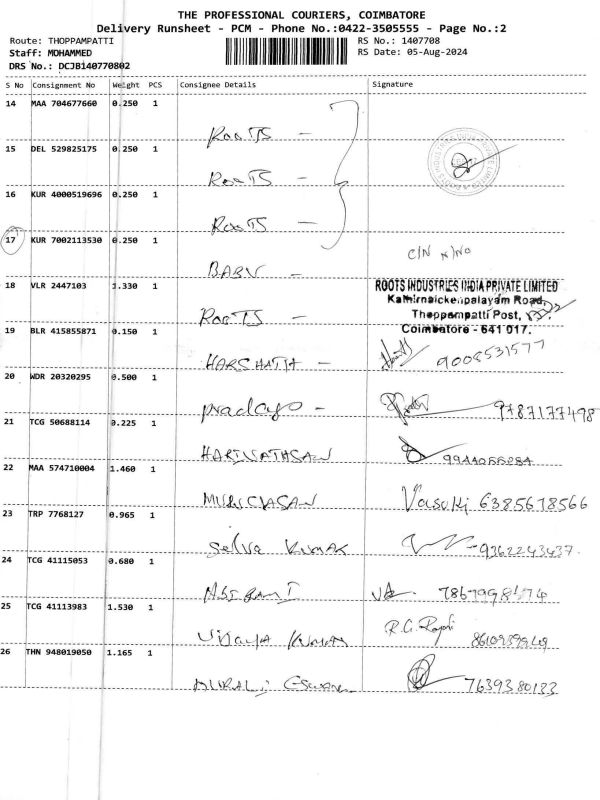 THE PROFESSIONAL COURIERS, COIMBATORE
Delivery Runsheet - PCM - Phone No.:0422-3505555 - Page No.:2
Route: THOPPAMPATTI RS No.: 1407708
Staff: MOHAMMED RS Date: 05-Aug-2024
DRS No.: DCJB140770802
S No Consignment No Weight PCS Consignee Details Signature
14 MAA 704677660 0.250 1
ROOTS -
15 DEL 529825175 0.250 1
ROOTS -
16 KUR 4000519696 0.250 1
ROOTS -
17 KUR 7002113530 0.250 1
BABU - C/N
18 VLR 2447103 1.330 1
ROOTS -
ROOTS INDUSTRIES INDIA PRIVATE LIMITED
Kathirnaickenpalayam Road,
Thoppampatti Post,
Coimbatore - 641 017.
19 BLR 415855871 0.150 1
HARSHATH - 9008531577
20 WDR 20320295 0.500 1
9787177498
21 TCG 50688114 0.225 1
9944055284
22 MAA 574710004 1.460 1
Vasuki 6385678566
23 TRP 7768127 0.965 1
Selva Kumar 9362243437
24 TCG 41115053 0.680 1
ABIRAMI
25 TCG 41113983 1.530 1
Vijaya Kumar
26 THN 948019050 1.165 1